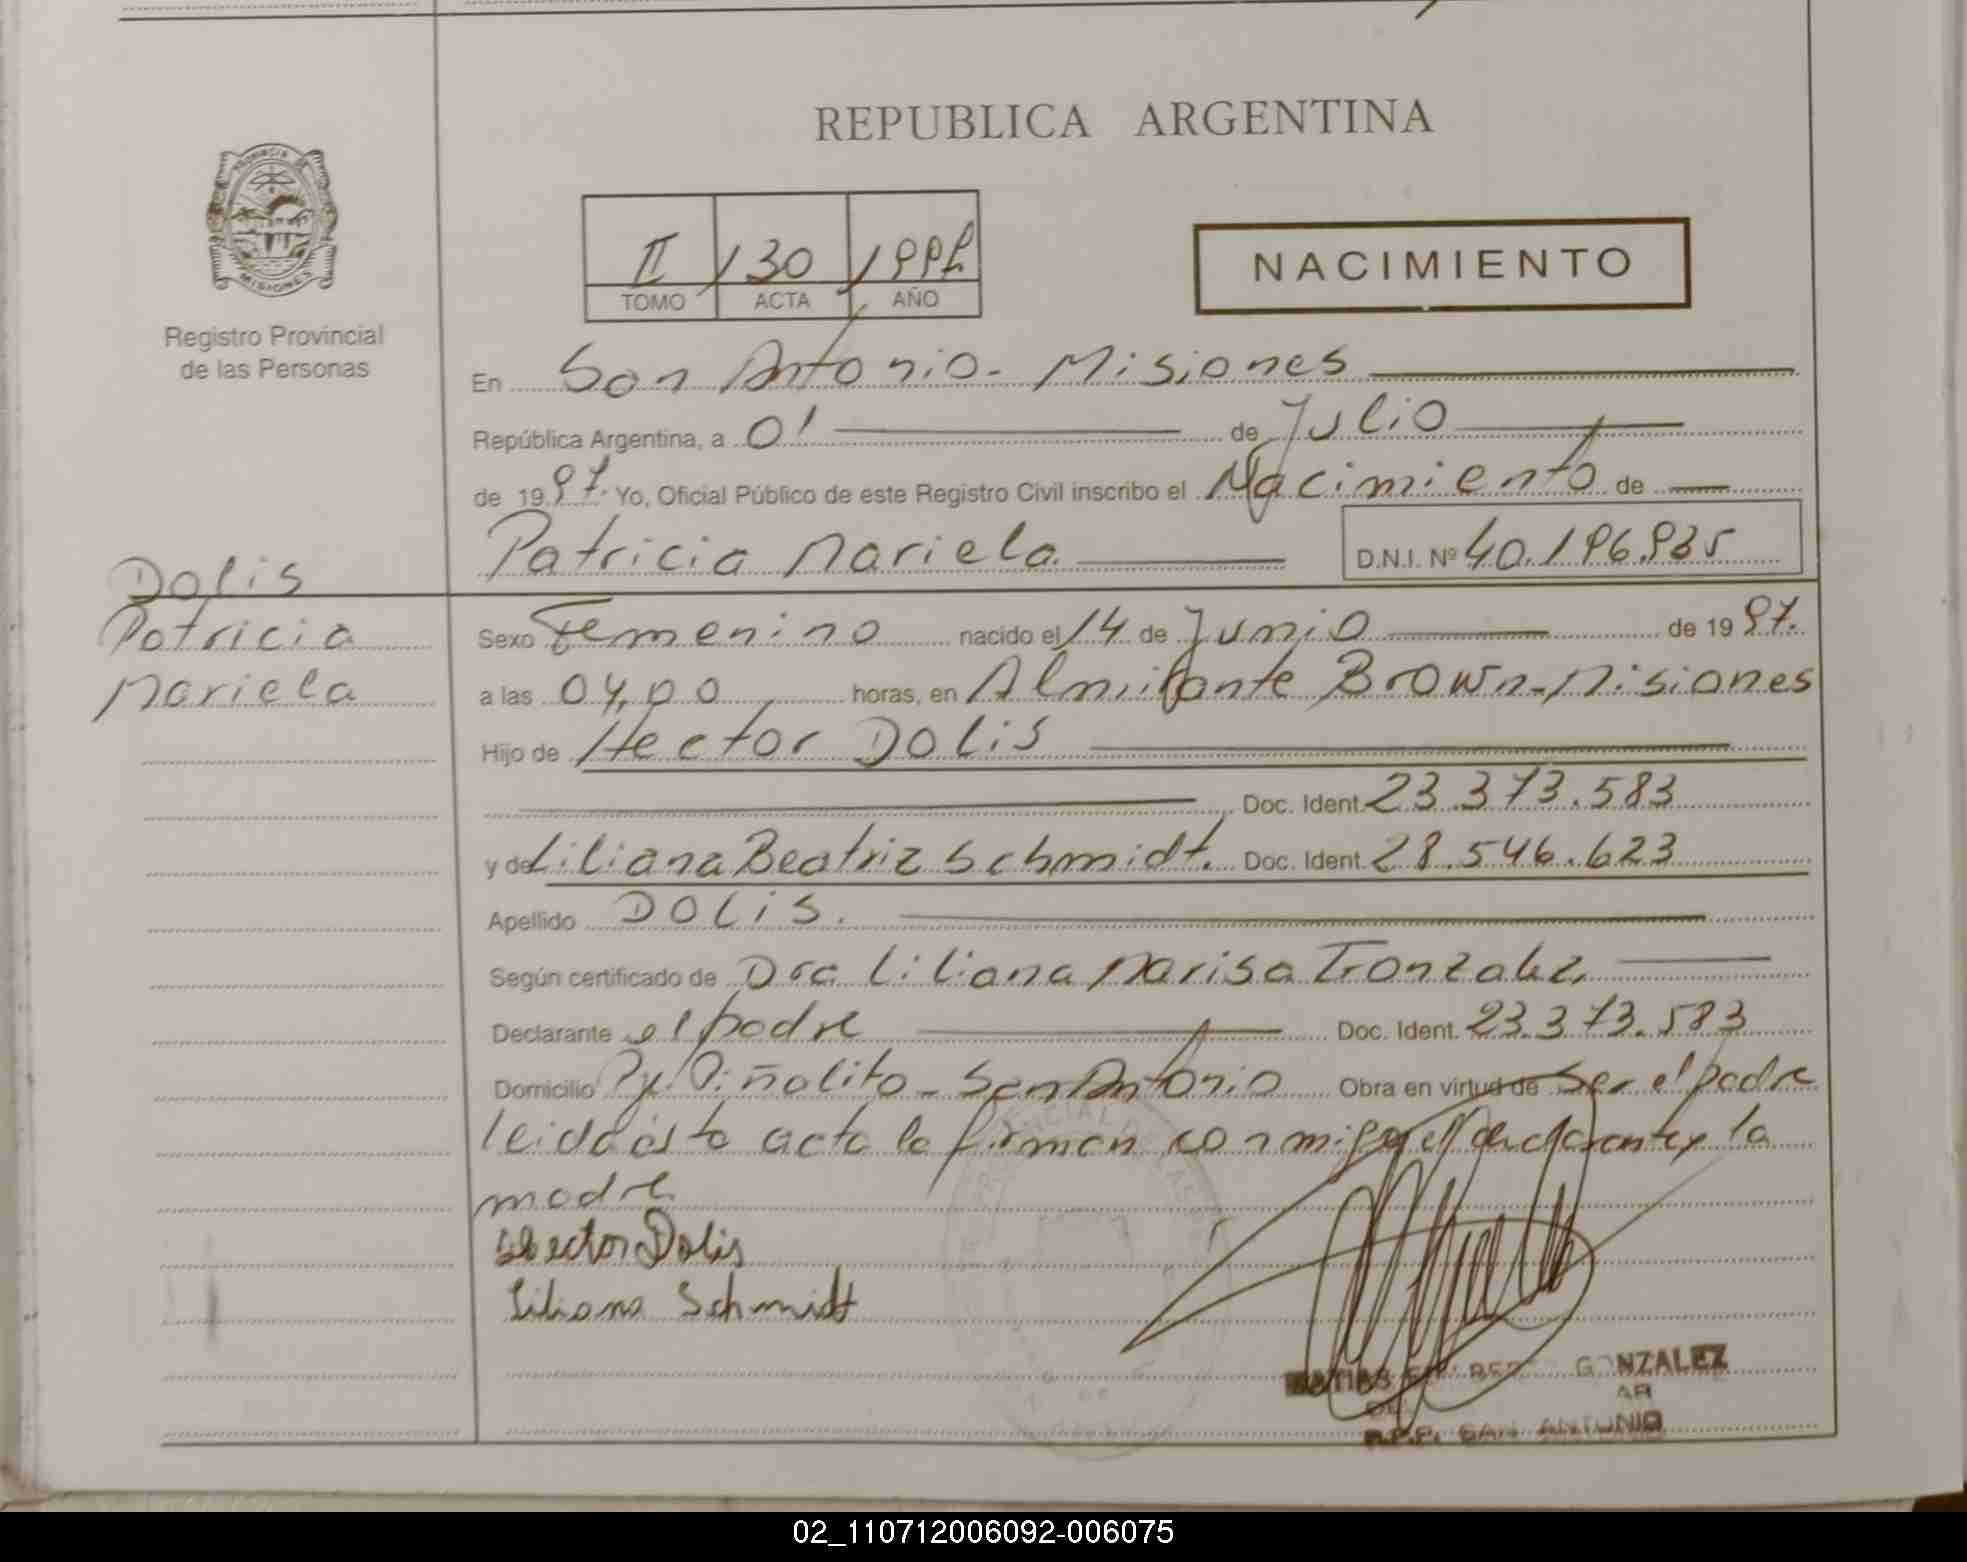 REPUBLICA ARGENTINA
PROVINCIA DE
MISIONES
Registro Provincial
de las Personas
II 130 1997
TOMO ACTA AÑO
NACIMIENTO
En San Antonio - Misiones
República Argentina, a 01 de Julio
de 1997. Yo, Oficial Público de este Registro Civil inscribo el Nacimiento de
Patricia Mariela. D.N.I. Nº 40.196.935
Dolis
Patricia
Mariela
Sexo Femenino nacido el 14 de Junio de 1997.
a las 04,00 horas, en Almirante Brown - Misiones
Hijo de Hector DOLIS
Doc. Ident. 23.373.583
y de Liliana Beatriz Schmidt. Doc. Ident. 28.546.623
Apellido DOLIS.
Según certificado de Dra Liliana Marisa Gonzalez,
Declarante el padre Doc. Ident. 23.373.583
Domicilio Pje. Piñalito - San Antonio Obra en virtud de Ser el padre
leida ésta acta la firman conmigo el declarante y la
madre
Hector Dolis
Liliana Schmidt
GONZALEZ
R.P.P. SAN ANTONIO
02_110712006092-006075